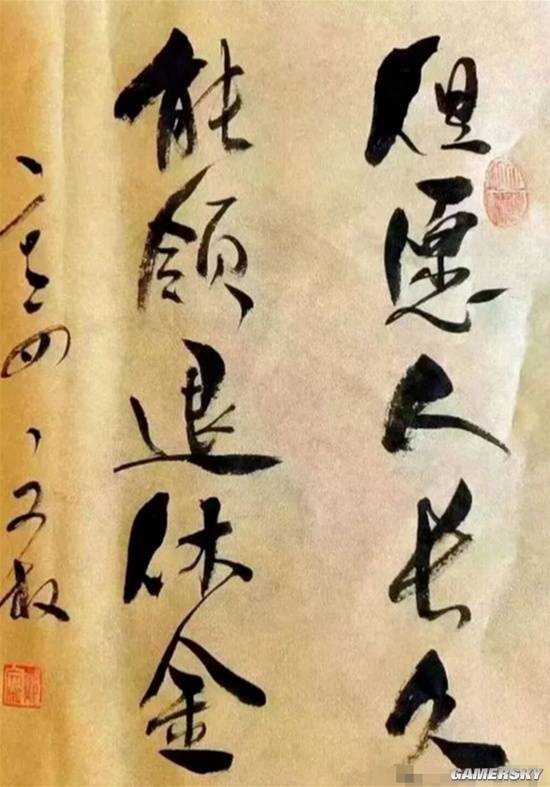 但愿人长久
能领退休金
GAMERSKY